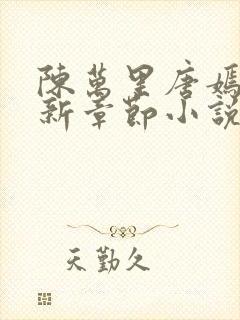 陳萬里唐嫣
新章節小說
天勤久